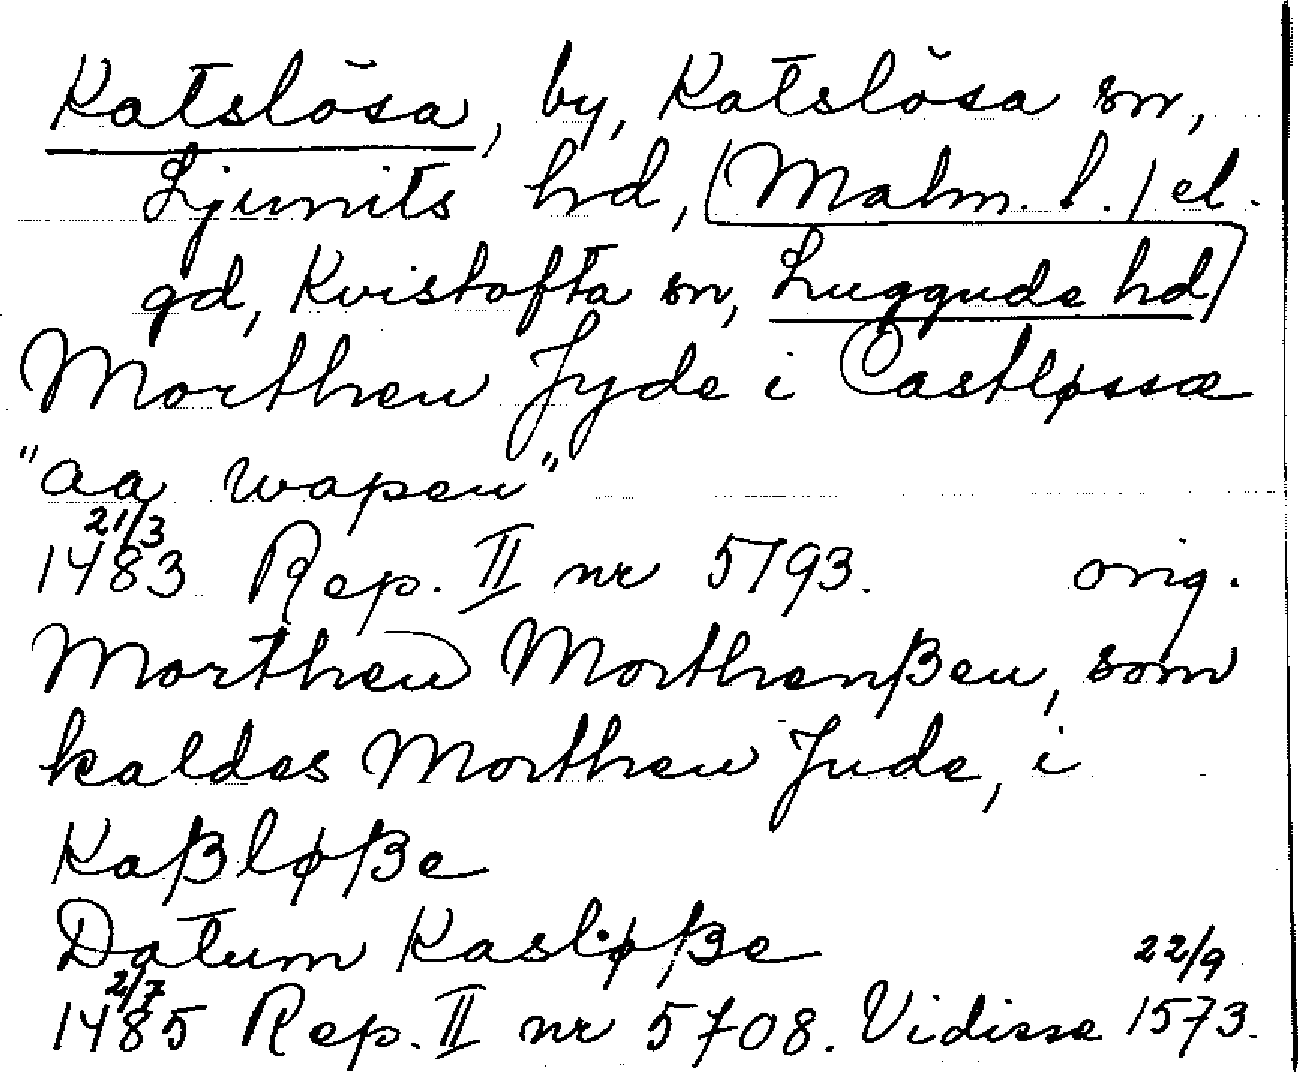 Katslösa, by, Katslösa sn,
Ljunits hd, (Malm. l.) el.
gd, Kvistofta sn, Luggude hd)
Morthen Jyde i Castløssæ
"aa wapen"
21/3
1483 Rep. II nr 5193. orig.
Morthen Morthenßen, som
kaldes Morthen Jude, i
Kaßløße
Datum Kasløße 22/9
2/7
1485 Rep. II nr 5708. Vidisse 1573.